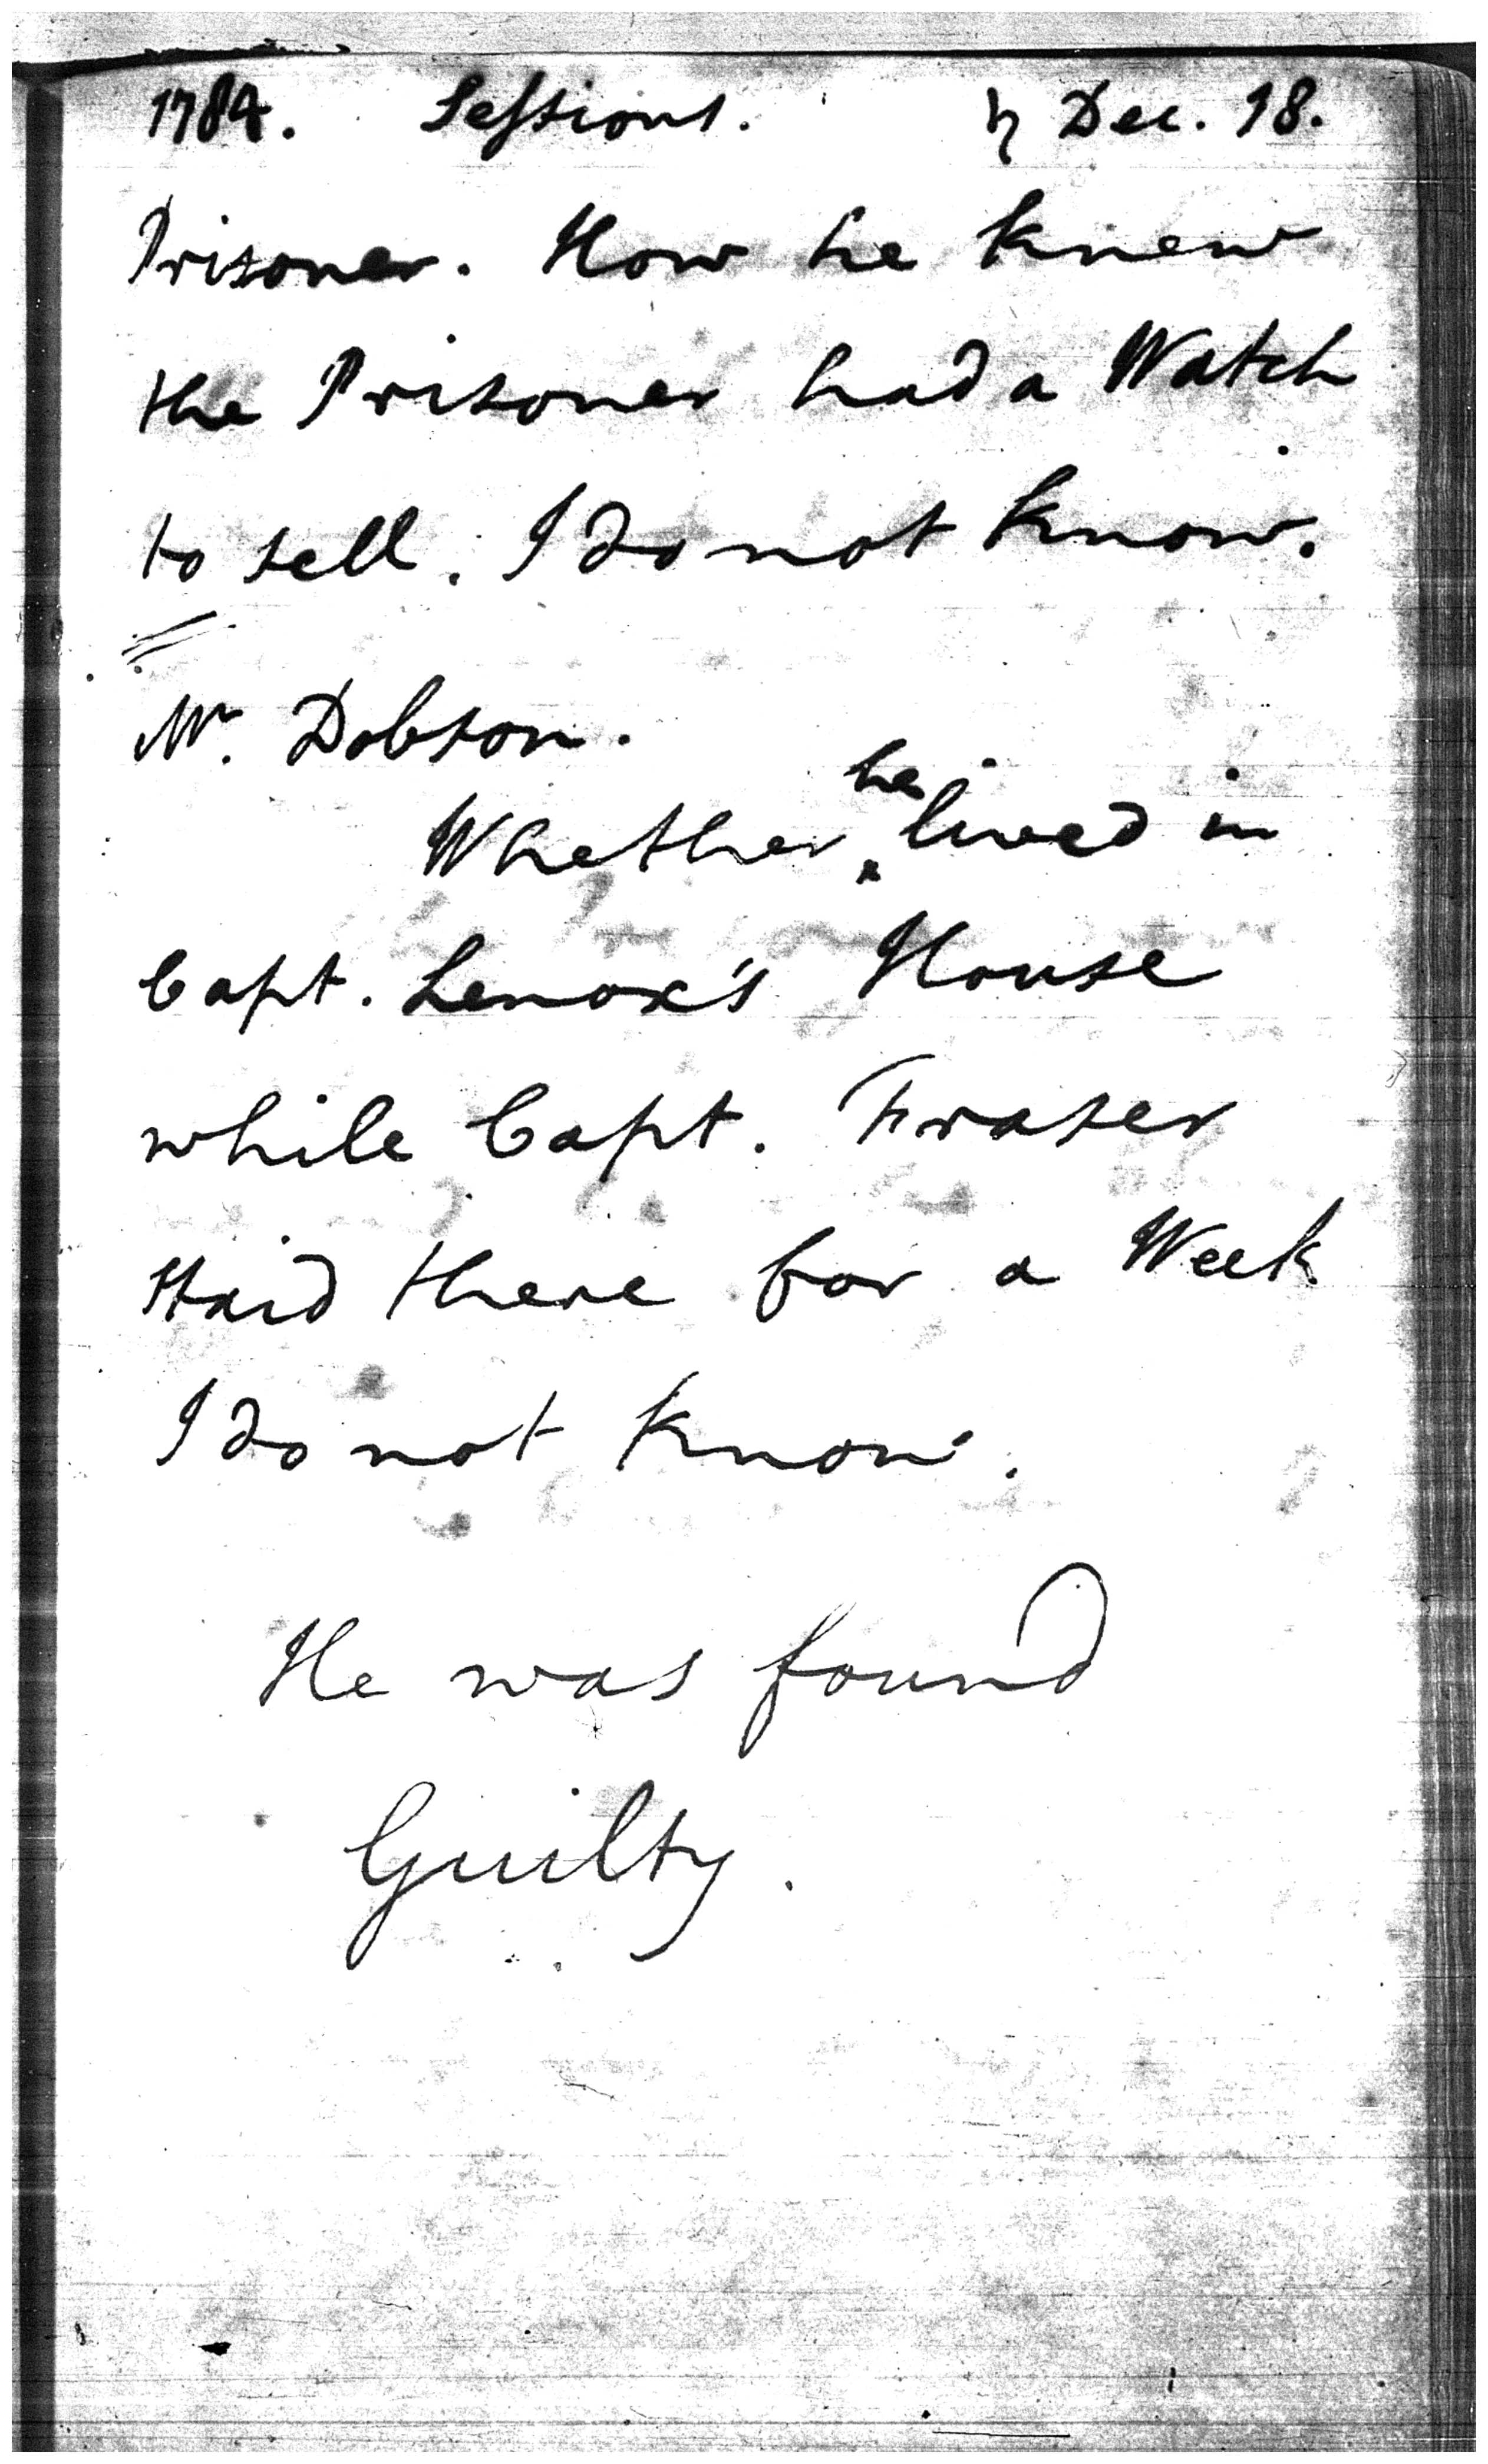 1784. Sessions. ♄ Dec. 18.
Prisoner. How he knew
the Prisoner had a Watch
to sell. I do not know.
Mr. Dobson.
Whether he lived in
Capt. Lenox's House
while Capt. Fraser
staid there for a Week
I do not know.
He was found
Guilty.